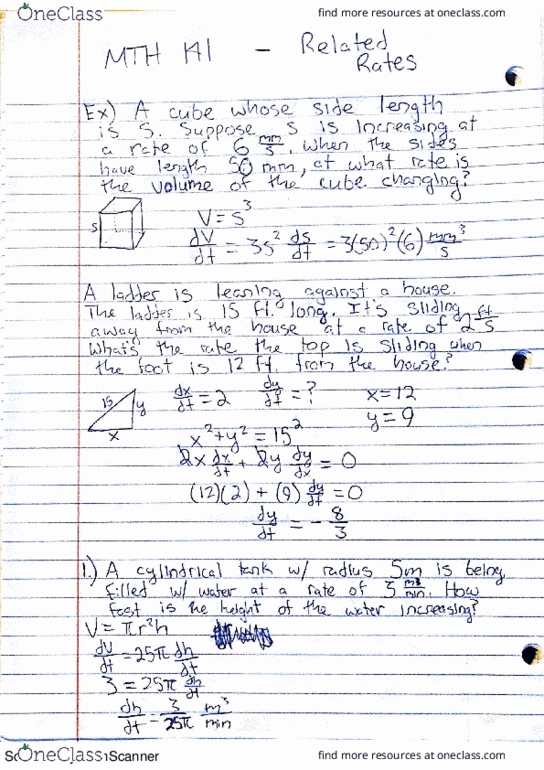 OneClass
find more resources at oneclass.com
MTH 141 - Related Rates
Ex) A cube whose side length
is S. Suppose S is increasing at
a rate of 6 mm/s. When the sides
have length 50 mm, at what rate is
the volume of the cube changing?
S
V = S³
dV/dt = 3s² ds/dt = 3(50)²(6) mm³/s
A ladder is leaning against a house.
The ladder is 15 ft. long. It's sliding
away from the house at a rate of 2 ft/s
What's the rate the top is sliding when
the foot is 12 ft. from the house?
15 y x
dx/dt = 2 dy/dt = ? x = 12
y = 9
x² + y² = 15²
2x dx/dt + 2y dy/dx = 0
(12)(2) + (9) dy/dt = 0
dy/dt = - 8/3
1.) A cylindrical tank w/ radius 5m is being
filled w/ water at a rate of 3 m³/min. How
fast is the height of the water increasing?
V = πr²h
dV/dt = 25π dh/dt
3 = 25π dh/dt
dh/dt = 3/25π m³/min
OneClass
Scanner
find more resources at oneclass.com